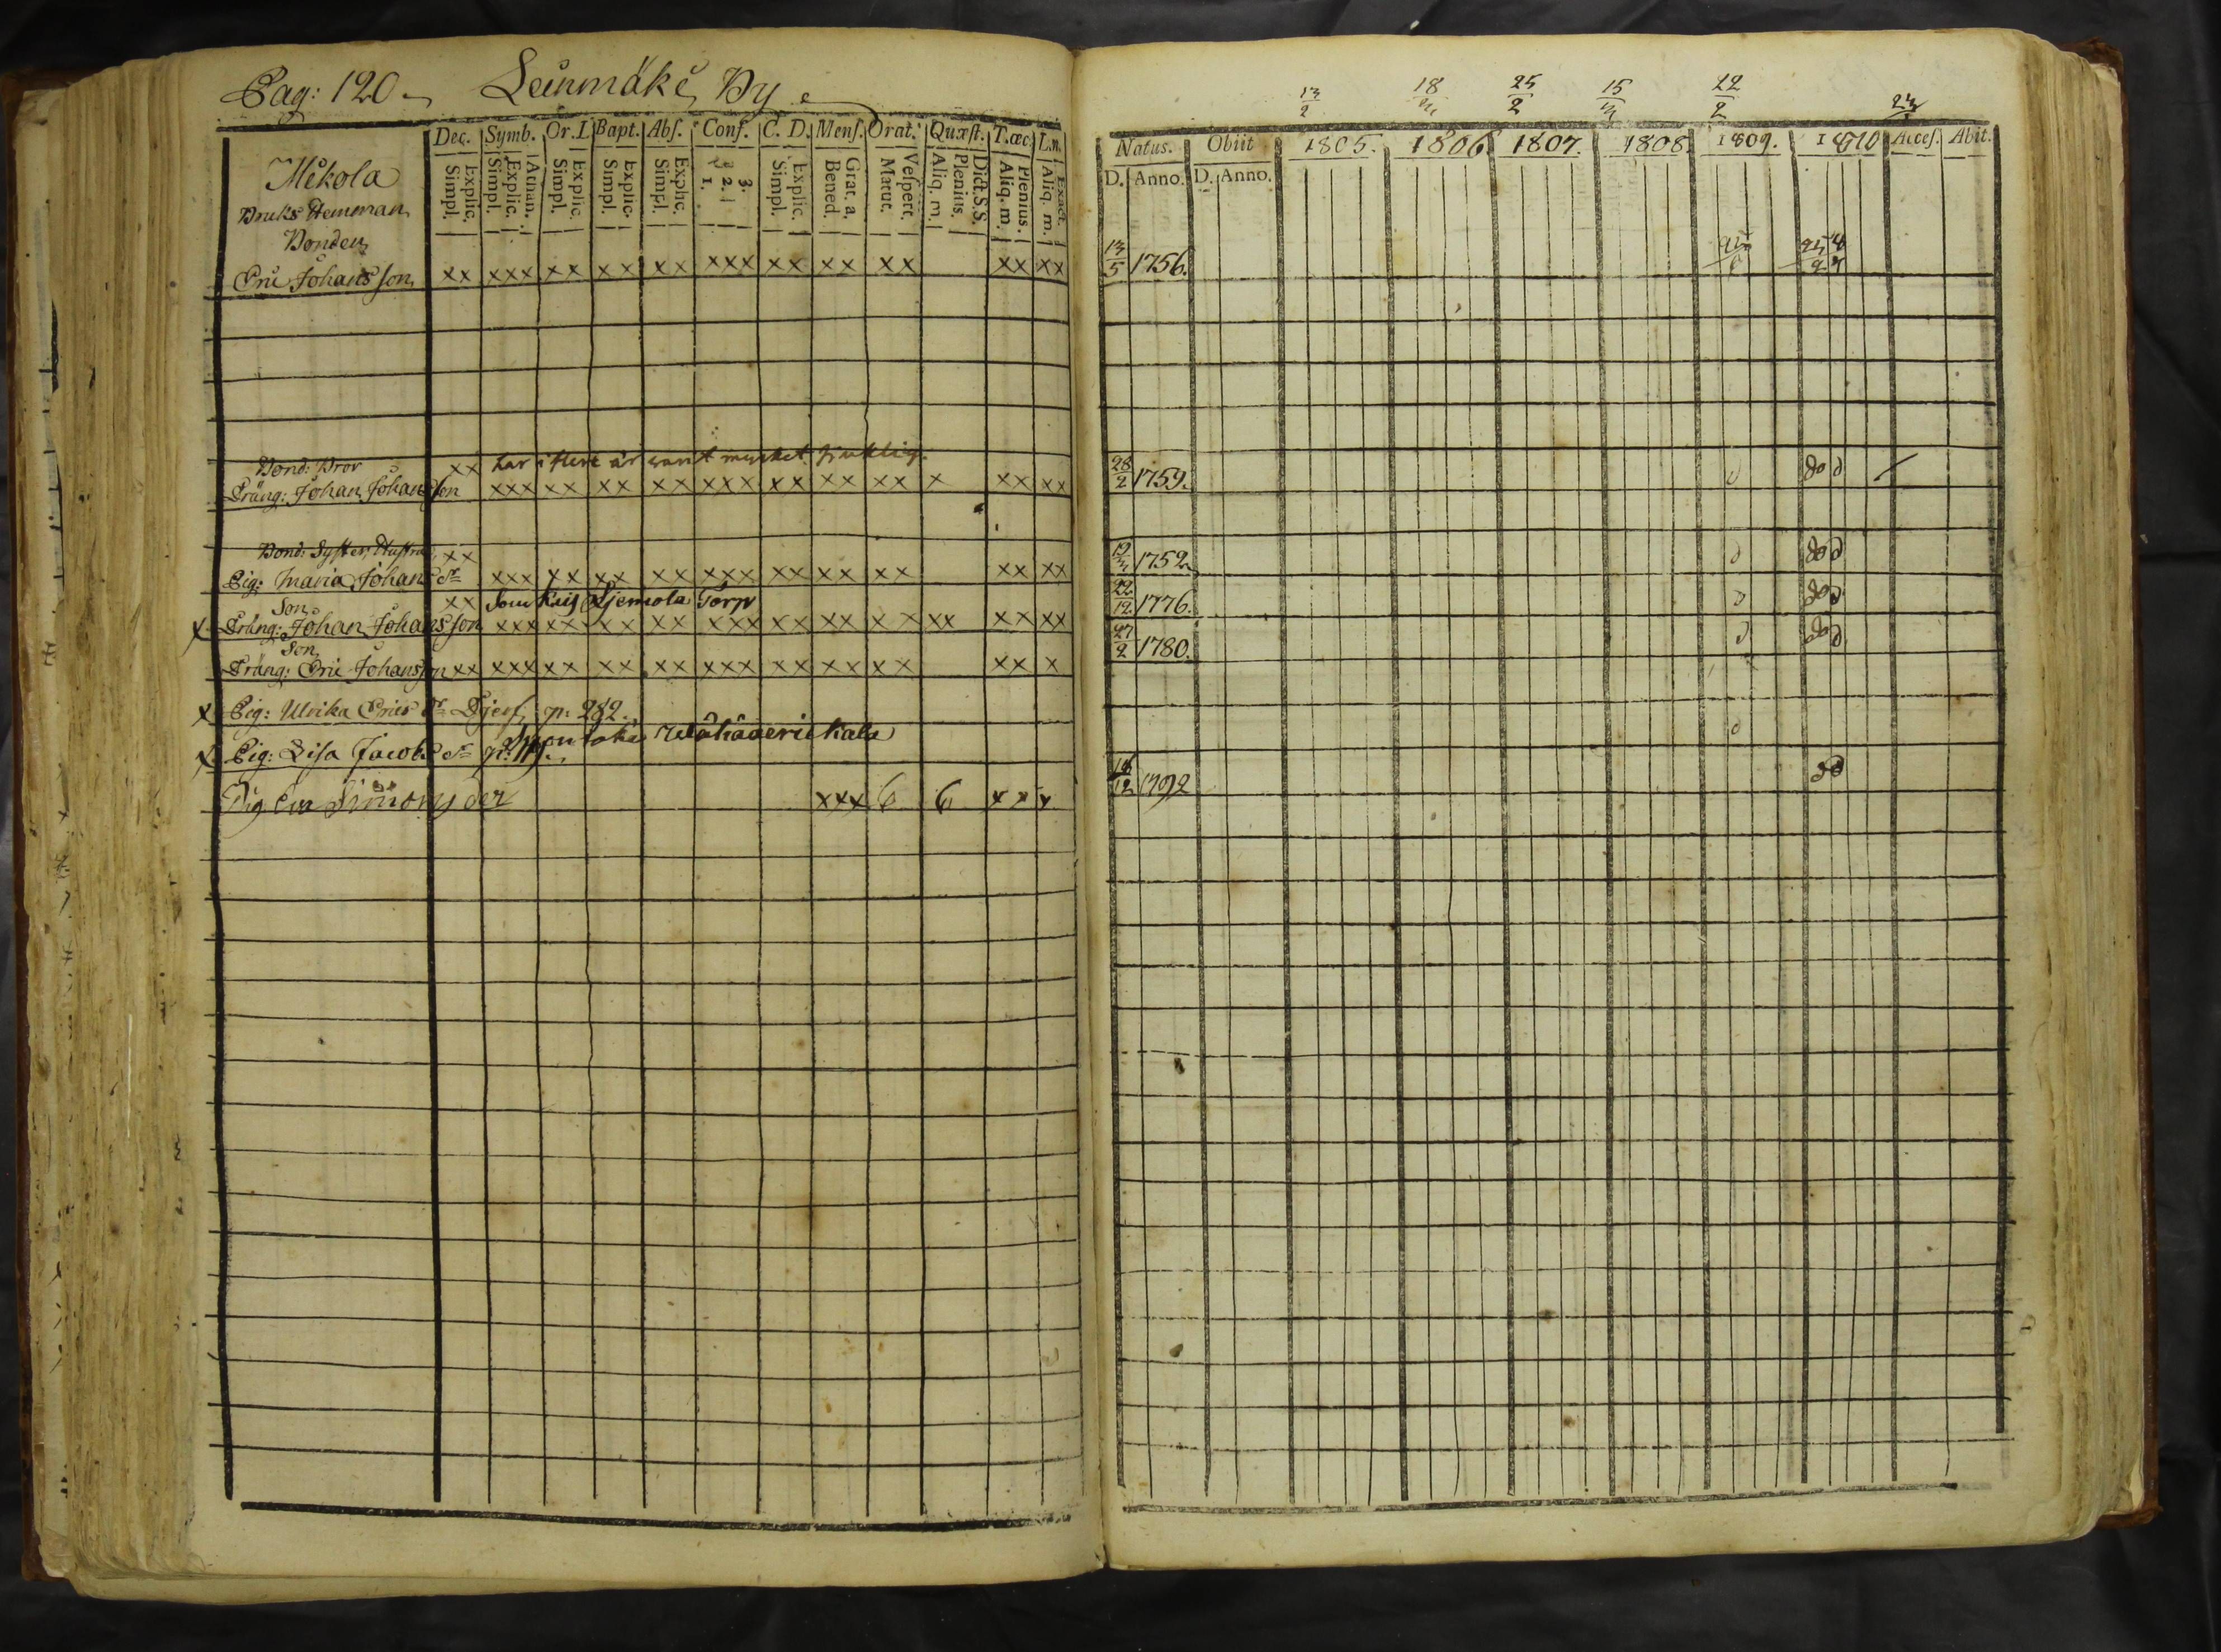 Pag: 120. Leinmäki By
Dec. Symb. Or. D. Bapt. Abs. Conf. C. D. Mens. Orat. Quæst. T. œc. L. n.
Explic. Simpl. Athan. Explic. Simpl. Explic. Simpl. Explic. Simpl. Explic. Simpl. 3. 2. 1. Explic. Simpl. Grat. a. Bened. Vespert. Matut. Dict. S. S. Plenius. Aliq. m. Plenius. Aliq. m. Exact. Aliq. m.
Mikola
Bruks Hemman
Bonden
Eric Johansson xx xxx xx xx xx xxx xx xx xx xx xx
Bond: Bror xx har i flere år varit mycket sjuklig.
Dräng: Johan Johansson xxx xx xx xx xxx xx xx xx x xx xx
Bond: Syster, Hustru xx
Pig: Maria Johans dr xxx xx xx xx xxx xx xx xx xx xx
Son xx Torp
x Dräng: Johan Johansson xxx xx xx xx xxx xx xx xx xx xx xx
Son
Dräng: Eric Johansson xx xxx xx xx xx xxx xx xx xx xx x
x Pig: Ulrika Erics dr p: 282.
x Pig: Lisa Jacobs dr
Pig Simons der xxx 6 6 xx x
13/2 18 25/2 15 22/2
Natus. Obiit 1805. 1806. 1807. 1808. 1809. 1810 Acces. Abit.
D. Anno. D. Anno.
13/5 1756.
28/2 1759. d do d
1752. d do d
22/12 1776. d do d
27/2 1780. d do d
d
12 1792 do